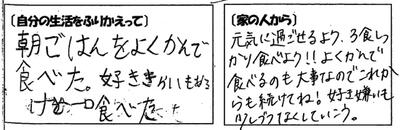 〔自分の生活をふりかえって〕
朝ごはんをよくかんで
食べた。好ききらいもある
けど一口食べた
〔家の人から〕
元気に過ごせるよう、3食しっ
かり食べよう!!よくかんで
食べるのも大事なのでこれか
らも続けてね!好き嫌いも
少しづつなくしていこう。